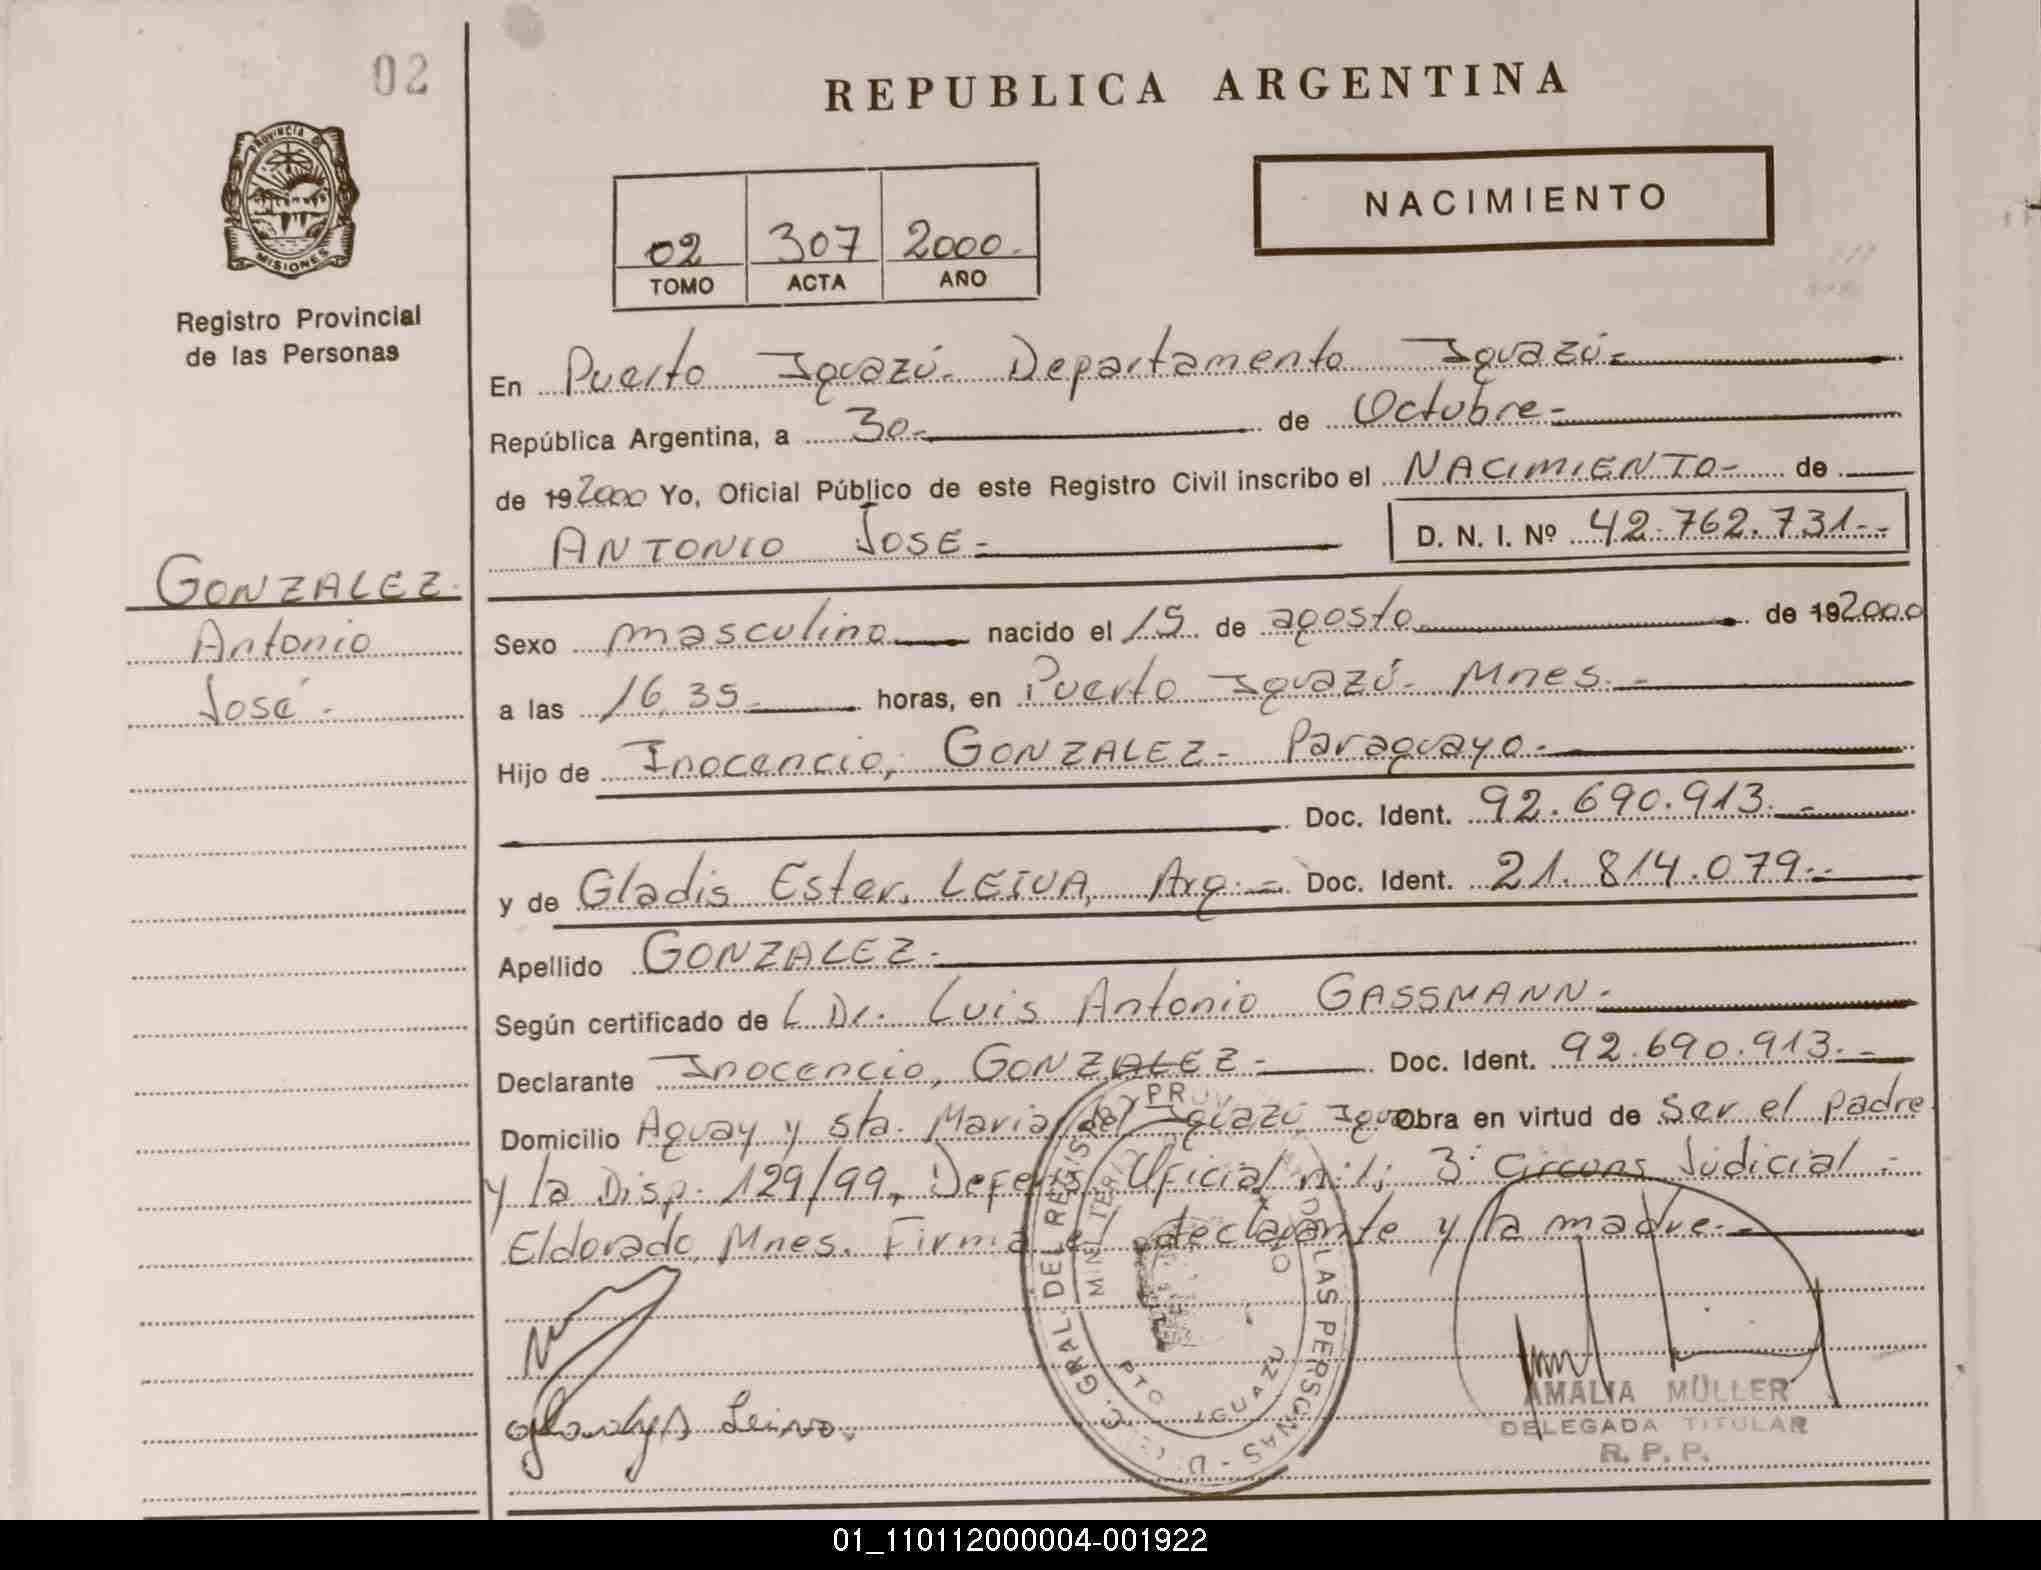 02
REPUBLICA ARGENTINA
PROVINCIA D
MISIONES
Registro Provincial
de las Personas
NACIMIENTO
02 307 2000.
TOMO ACTA AÑO
En Puerto Iguazú. Departamento Iguazú.-
República Argentina, a 30.- de Octubre.-
de 19 2000 Yo, Oficial Público de este Registro Civil inscribo el NACIMIENTO- de
ANTONIO JOSE.- D. N. I. Nº 42.762.731.-
GONZALEZ.
Antonio
José.-
Sexo masculino nacido el 15 de agosto de 19 2000
a las 16,35 horas, en Puerto Iguazú- Mnes.-
Hijo de Inocencio, GONZALEZ- Paraguayo.-
Doc. Ident. 92.690.913.-
y de Gladis Ester. LEIVA, Arg.- Doc. Ident. 21.814.079.-
Apellido GONZALEZ.-
Según certificado de l Dr. Luis Antonio GASSMANN.-
Declarante Inocencio, GONZALEZ- Doc. Ident. 92.690.913.-
Domicilio Aguay y sta. Maria del Iguazú Igua Obra en virtud de ser el padre
y la Disp. 129/99, Defens Oficial n:1; 3° Circuns Judicial.-
Eldorado, Mnes. Firma el declarante y la madre.-
GRAL. DEL REGIST PROV LAS PERSONAS
MINISTERIO
PTO IGUAZU
Leiva.
AMALIA MÜLLER
DELEGADA TITULAR
R. P. P.
01_110112000004-001922